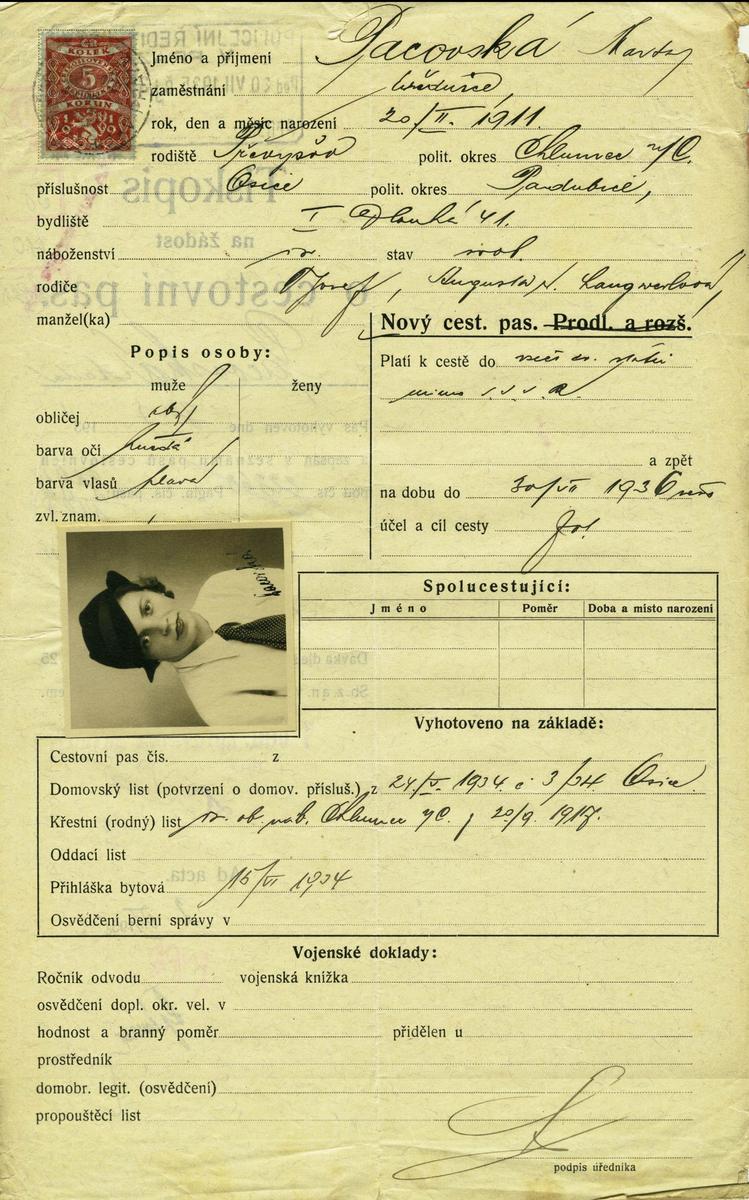 KOLEK
5
KORUN
1919
Jméno a příjmení Pacovská Marta
zaměstnání úřednice,
rok, den a měsíc narození 20/II. 1911
rodiště Převýšov polit. okres Chlumec n/C.
příslušnost Osice polit. okres Pardubice,
bydliště I Dlouhá 41.
náboženství stav svob.
rodiče Josef, Augusta r. Langweilová,
manžel(ka)
Nový cest. pas. Prodl. a rozš.
Popis osoby:
muže ženy
obličej
barva očí hnědá
barva vlasů plavá
zvl. znam.
Platí k cestě do
mimo
a zpět
na dobu do 30/VI 1936
účel a cíl cesty
Pacovská
Spolucestující:
Jméno Poměr Doba a místo narození
Vyhotoveno na základě:
Cestovní pas čís. z
Domovský list (potvrzení o domov. přísluš.) z 24./V. 1934. č 3/34 Osice.
Křestní (rodný) list iz. ob. náb. Chlumec n/C. 20/9. 1917.
Oddací list
Přihláška bytová 15/VI 1934
Osvědčení berní správy v
Vojenské doklady:
Ročník odvodu vojenská knížka
osvědčení dopl. okr. vel. v
hodnost a branný poměr přidělen u
prostředník
domobr. legit. (osvědčení)
propouštěcí list
podpis úředníka